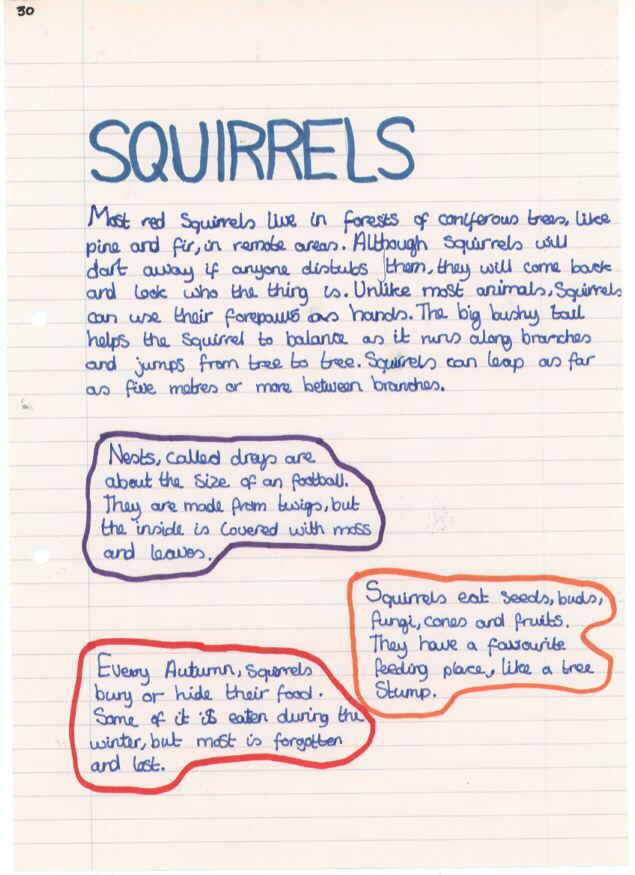 30
SQUIRRELS
Most red Squirrels live in forests of coniferous trees, like
pine and fir, in remote areas. Although Squirrels will
dart away if anyone distubs them, they will come back
and look who the thing is. Unlike most animals, Squirrels
can use their forepaws as hands. The big bushy tail
helps the Squirrel to balance as it runs along branches
and jumps from tree to tree. Squirrels can leap as far
as five metres or more between branches.
Nests, called dreys are
about the size of an football.
They are made from twigs, but
the inside is covered with moss
and leaves.
Squirrels eat seeds, buds,
fungi, cones and fruits.
They have a favourite
feeding place, like a tree
Stump.
Every Autumn, squirrels
bury or hide their food.
Some of it is eaten during the
winter, but most is forgotten
and lost.